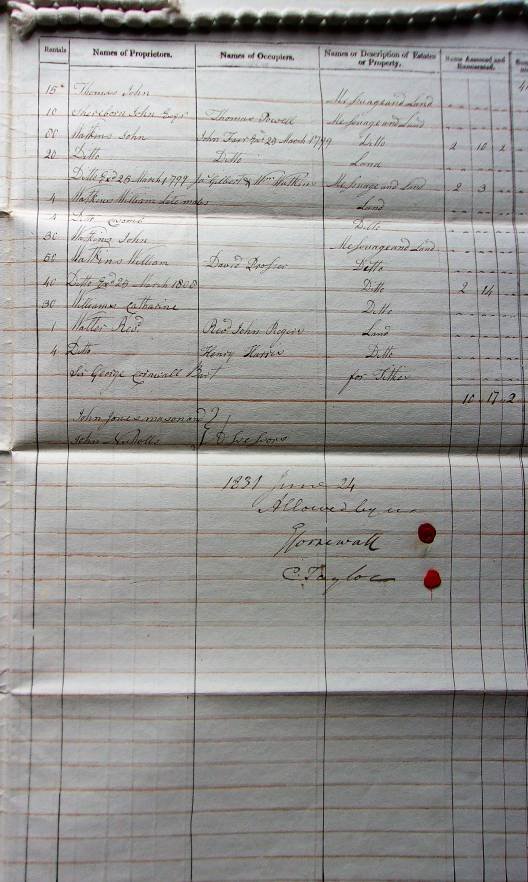 Rentals Names of Proprietors. Names of Occupiers. Names or Description of Estates or Property. Sums Assessed and Exonerated.
15 Thomas John Messuage and Land
10 Sherborn John Esqr Thomas Powell Messuage and Land
00 Watkins John John Farr Exd 25 March 1799 Ditto 2 10 2
20 Ditto Ditto Land
Ditto Exd 25 March 1799 Jas Gilbert & Wm Watkins Messuage and Land 2 3
4 Watkins William Land
4 Ditto Ditto
30 Watkins John Messuage and Land
50 Watkins William David Prosser Ditto
40 Ditto Exd 25 March 1800 Ditto 2 14
30 Williams Catharine Ditto
1 Walter Revd Revd John Rogers Land
4 Ditto Henry Harris Ditto
Sir George Cornwall Bart for Tithes
10 17 2
John Jones mason and
John Nicholls Assessors
1831 June 24
Allowed by us
Cornewall
C. Taylor